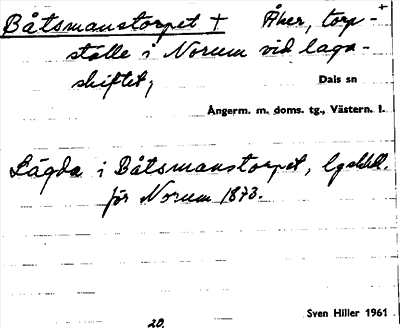 +
Båtsmanstorpet + Åker, torp-
ställe i Norum vid laga-
skiftet,
Dals sn
Ångerm. m. doms. tg., Västern. l.
Lägda i Båtsmanstorpet, lgskhdl.
för Norum 1873.
Sven Hiller 1961
20.